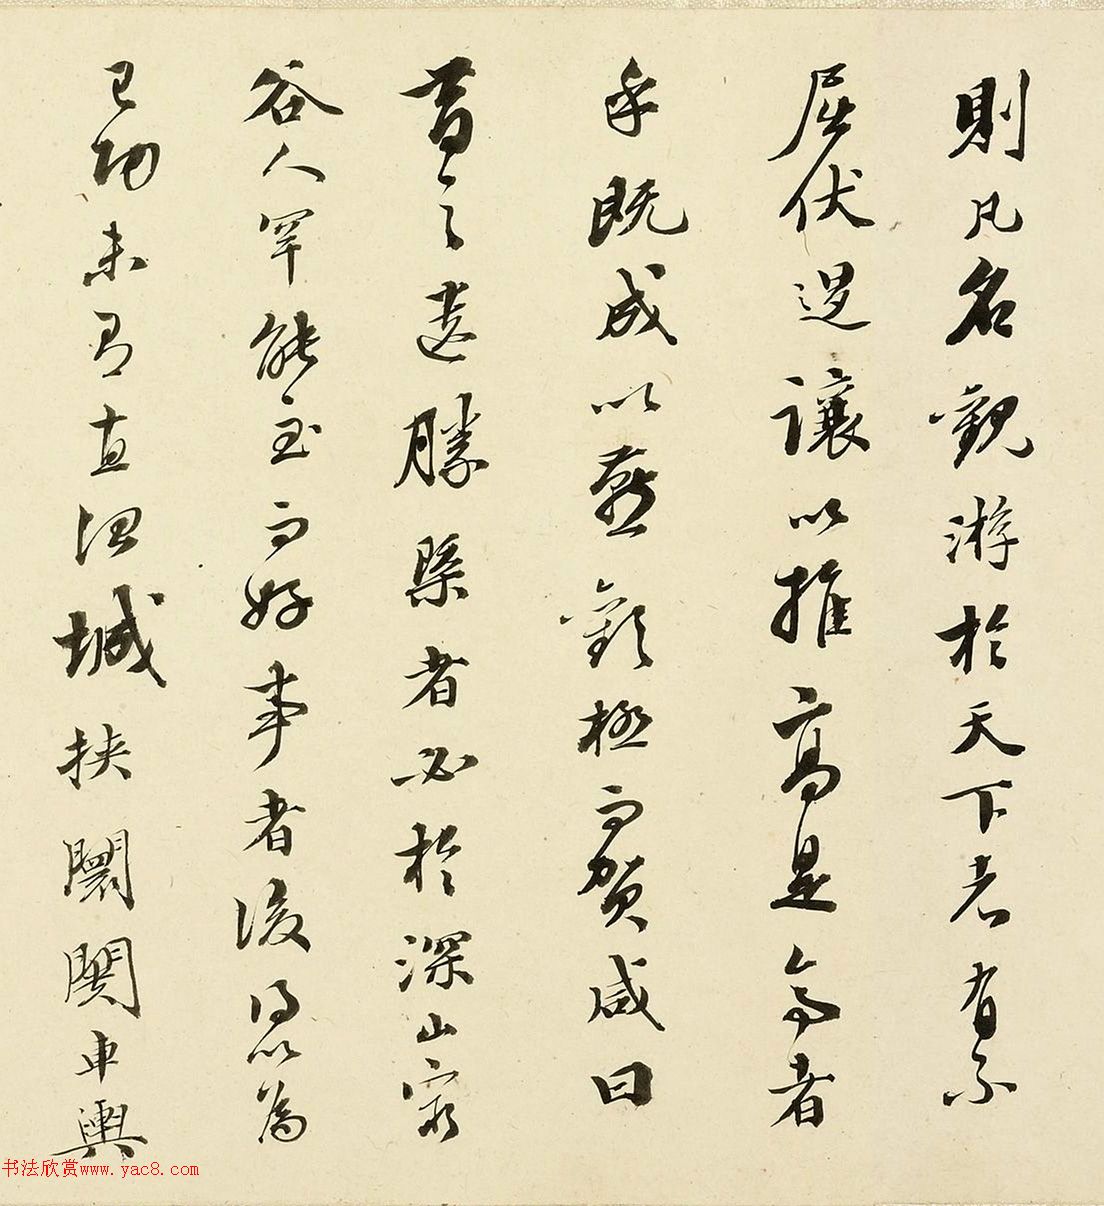 則凡名觀游於天下者有不
屈伏退讓以推高是亭者
乎既成以燕歡極而賀咸曰
昔之遺勝槩者必於深山窮
谷人罕能至而好事者後得以為
己功未有直治城挾闤闠車輿
书法欣赏www.yac8.com